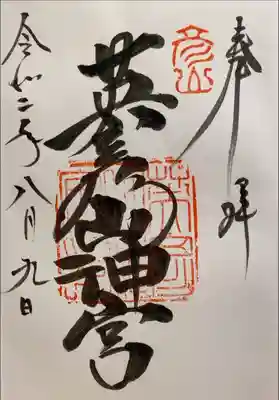 奉拝
彦山
英彦山神宮
令和二年八月九日